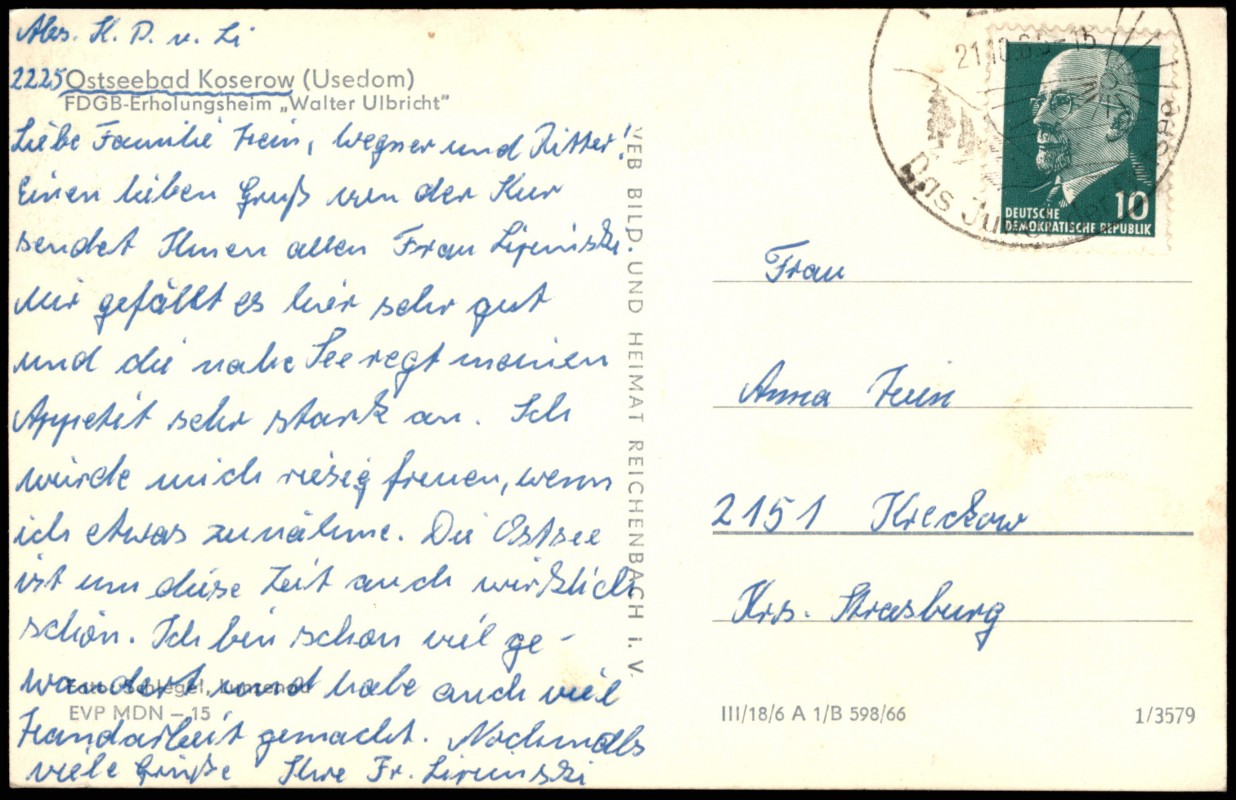 Abs. K. P. v. Li
2225 Ostseebad Koserow (Usedom)
FDGB-Erholungsheim „Walter Ulbricht"
Liebe Familie Hein, Wegner und Ritter!
Einen lieben Gruß von der Kur
sendet Ihnen allen Frau
Mir gefällt es hier sehr gut
und die nahe See regt meinen
Appetit sehr stark an. Ich
würde mich riesig freuen, wenn
ich etwas zunähme. Die Ostsee
ist um diese Zeit auch wirklich
schön. Ich bin schon viel ge-
wandert und habe auch viel
Handarbeit gemacht. Nochmals
viele Grüße Ihre Fr.
Foto: Schlegel,
EVP MDN – 15
VEB BILD UND HEIMAT REICHENBACH i. V.
21.10.6 -15
Das
10
DEUTSCHE
DEMOKRATISCHE REPUBLIK
Frau
Anna Hein
2151 Kreckow
Krs. Strasburg
III/18/6 A 1/B 598/66
1/3579